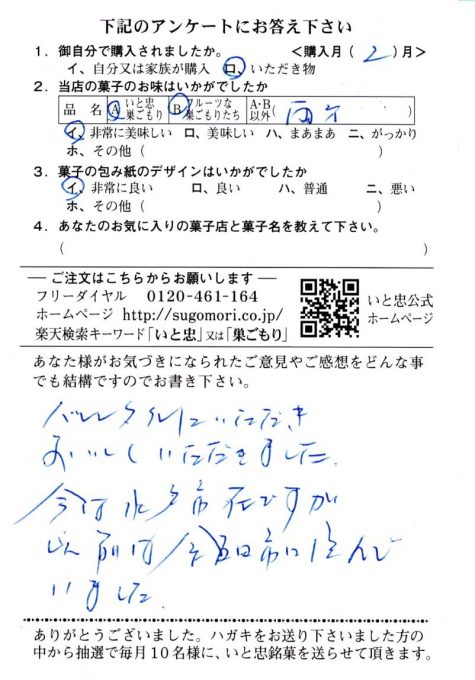 下記のアンケートにお答え下さい
1. 御自分で購入されましたか。 <購入月(2)月>
イ、自分又は家族が購入 ロ、いただき物
2. 当店の菓子のお味はいかがでしたか
品 名 A いと忠巣ごもり B フルーツな巣ごもりたち A・B以外( 両方 )
イ、非常に美味しい ロ、美味しい ハ、まあまあ ニ、がっかり
ホ、その他( )
3. 菓子の包み紙のデザインはいかがでしたか
イ、非常に良い ロ、良い ハ、普通 ニ、悪い
ホ、その他( )
4. あなたのお気に入りの菓子店と菓子名を教えて下さい。
( )
― ご注文はこちらからお願いします ―
フリーダイヤル 0120-461-164
ホームページ http://sugomori.co.jp/
楽天検索キーワード「いと忠」又は「巣ごもり」
いと忠公式
ホームページ
あなた様がお気づきになられたご意見やご感想をどんな事
でも結構ですのでお書き下さい。
いただき
おいしくいただきました。
今は 市在ですが
以前は 市に住んで
いました。
ありがとうございました。ハガキをお送り下さいました方の
中から抽選で毎月10名様に、いと忠銘菓を送らせて頂きます。